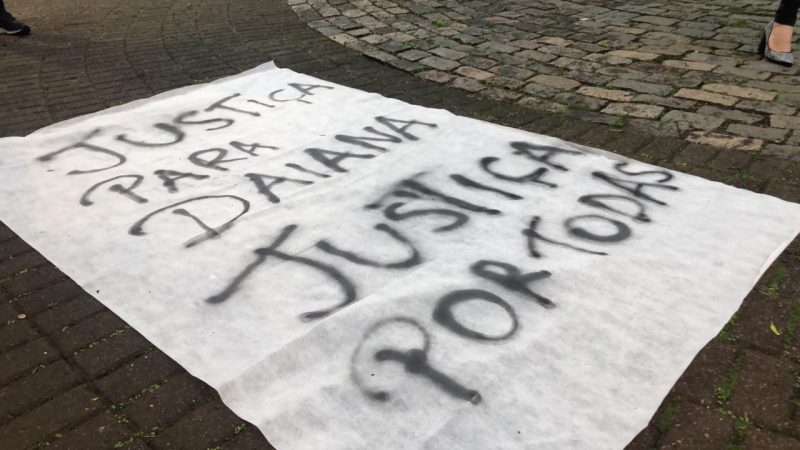 JUSTIÇA
PARA
DAIANA
JUSTIÇA
POR TODAS